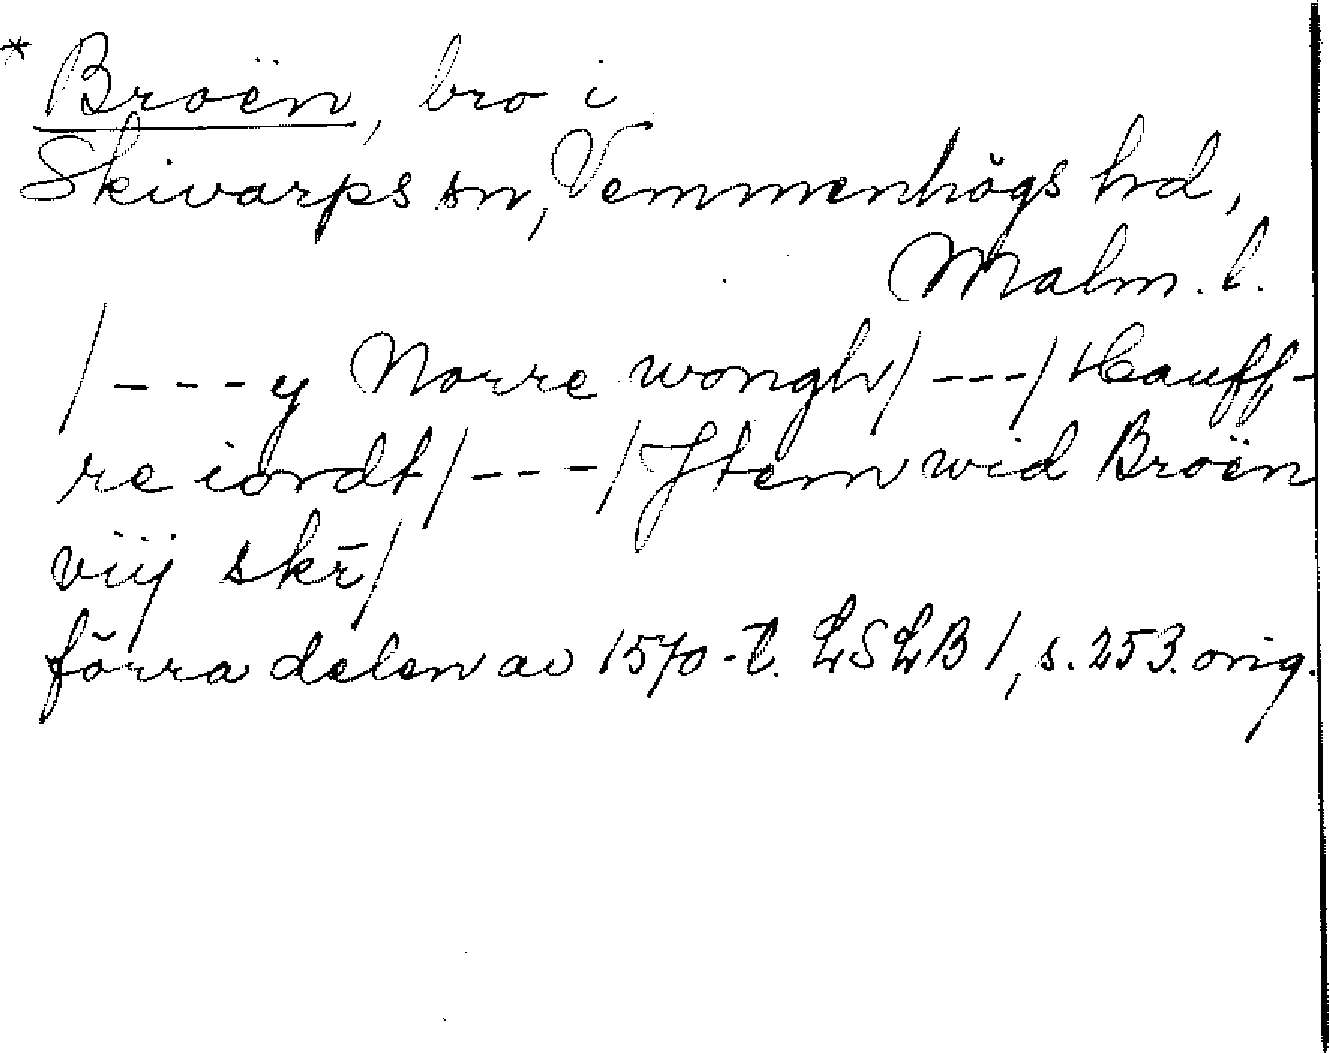 * Broën, bro i
Skivarps sn, Vemmenhögs hd,
Malm. l.
/---y Norre wongh/---/Hauff-
re iordt/---/Jtem wid Broën
viij skr̄/
förra delen av 1570-t. LSLB 1, s. 253. orig.